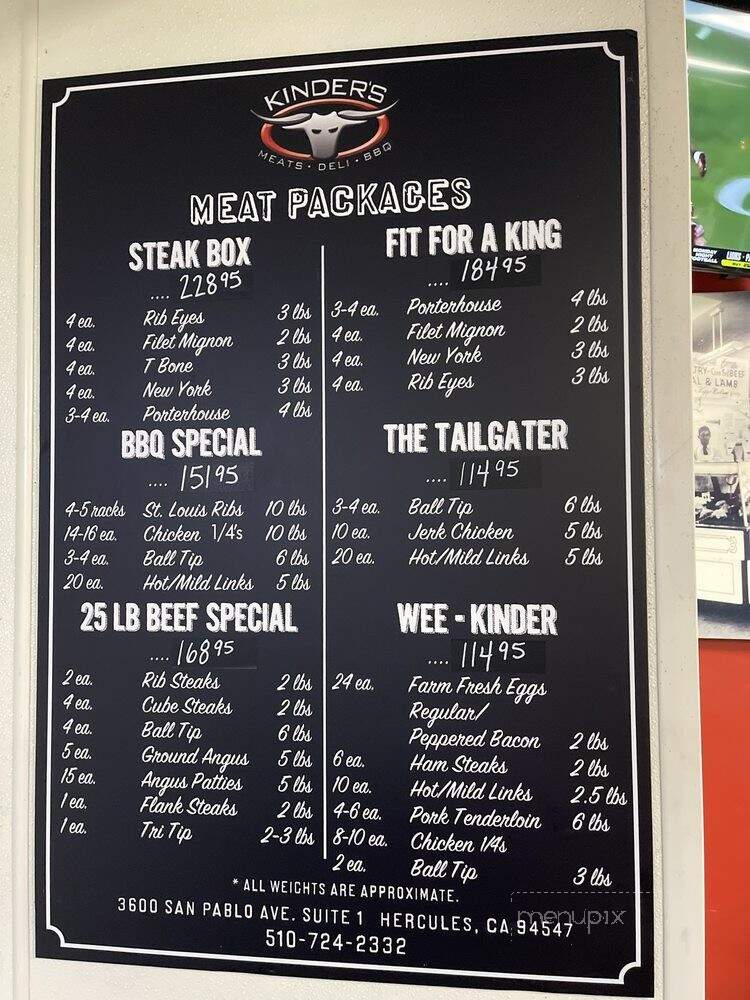 KINDER'S
MEATS · DELI · BBQ
MEAT PACKAGES
STEAK BOX
.... 228 95
4 ea. Rib Eyes 3 lbs
4 ea. Filet Mignon 2 lbs
4 ea. T Bone 3 lbs
4 ea. New York 3 lbs
3-4 ea. Porterhouse 4 lbs
BBQ SPECIAL
.... 151 95
4-5 racks St. Louis Ribs 10 lbs
14-16 ea. Chicken 1/4's 10 lbs
3-4 ea. Ball Tip 6 lbs
20 ea. Hot/Mild Links 5 lbs
25 LB BEEF SPECIAL
.... 168 95
2 ea. Rib Steaks 2 lbs
4 ea. Cube Steaks 2 lbs
4 ea. Ball Tip 6 lbs
5 ea. Ground Angus 5 lbs
15 ea. Angus Patties 5 lbs
1 ea. Flank Steaks 2 lbs
1 ea. Tri Tip 2-3 lbs
FIT FOR A KING
.... 184 95
3-4 ea. Porterhouse 4 lbs
4 ea. Filet Mignon 2 lbs
4 ea. New York 3 lbs
4 ea. Rib Eyes 3 lbs
THE TAILGATER
.... 114 95
3-4 ea. Ball Tip 6 lbs
10 ea. Jerk Chicken 5 lbs
20 ea. Hot/Mild Links 5 lbs
WEE - KINDER
.... 114 95
24 ea. Farm Fresh Eggs
Regular/
Peppered Bacon 2 lbs
6 ea. Ham Steaks 2 lbs
10 ea. Hot/Mild Links 2.5 lbs
4-6 ea. Pork Tenderloin 6 lbs
8-10 ea. Chicken 1/4s
2 ea. Ball Tip 3 lbs
* ALL WEIGHTS ARE APPROXIMATE.
3600 SAN PABLO AVE. SUITE 1 HERCULES, CA 94547
510-724-2332
menupix
MONDAY
NIGHT
FOOTBALL
LIONS
BEEF
& LAMB